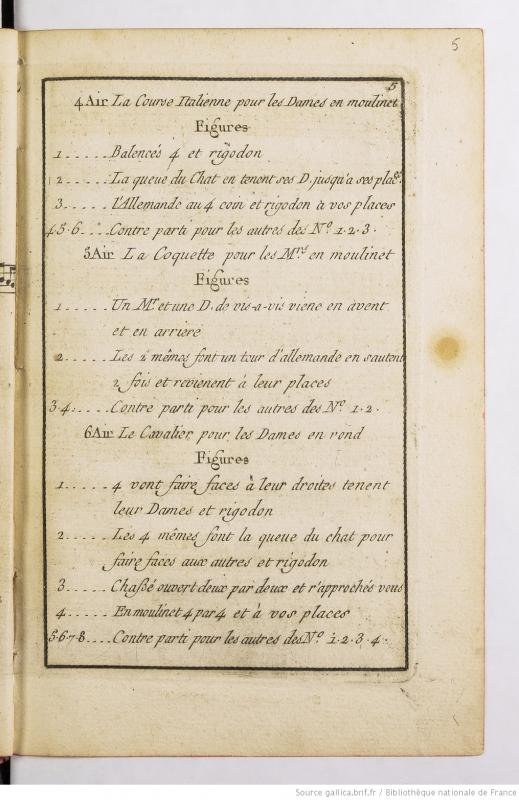 5
5
4 Air La Course Italienne pour les Dames en moulinet
Figures
1..... Balencés 4 et rigodon
2..... La queue du Chat en tenent ses D. jusqu'a ses plac.
3..... L'Allemande au 4 coin et rigodon à vos places
4 5. 6.... Contre parti pour les autres des No. 1. 2. 3.
5 Air La Coquette pour les Mrs en moulinet
Figures
1..... Un Mr et une D. de vis-a-vis viene en avent
et en arriere
2..... Les 2 mêmes font un tour d'allemande en sautent
2 fois et revienent à leur places
3. 4..... Contre parti pour les autres des No. 1. 2.
6 Air Le Cavalier pour les Dames en rond
Figures
1..... 4 vont faire faces à leur droites tenent
leur Dames et rigodon
2..... Les 4 mêmes font la queue du chat pour
faire faces aux autres et rigodon
3..... Chaßé ouvert deux par deux et r'approchés vous
4..... En moulinet 4 par 4 et à vos places
5. 6. 7. 8.... Contre parti pour les autres des No. 1. 2. 3. 4.
Source gallica.bnf.fr / Bibliothèque nationale de France